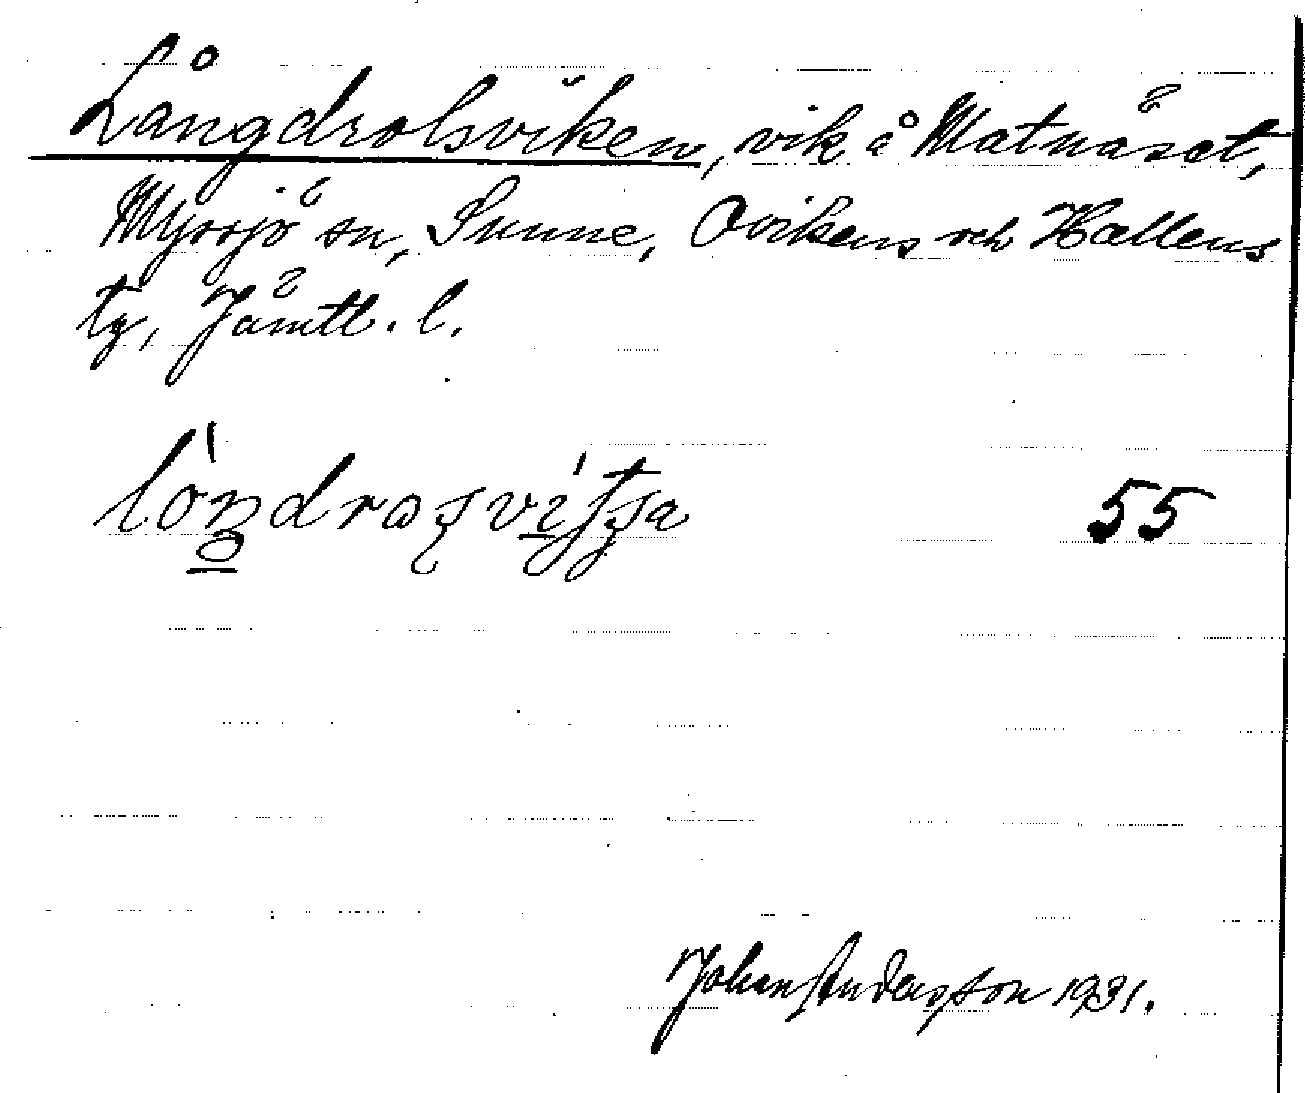 Långdrolsviken, vik å Matnäset,
Myssjö sn, Sunne, Ovikens och Hallens
tg, Jämtl. l.
55
Johan Andersson 1931.